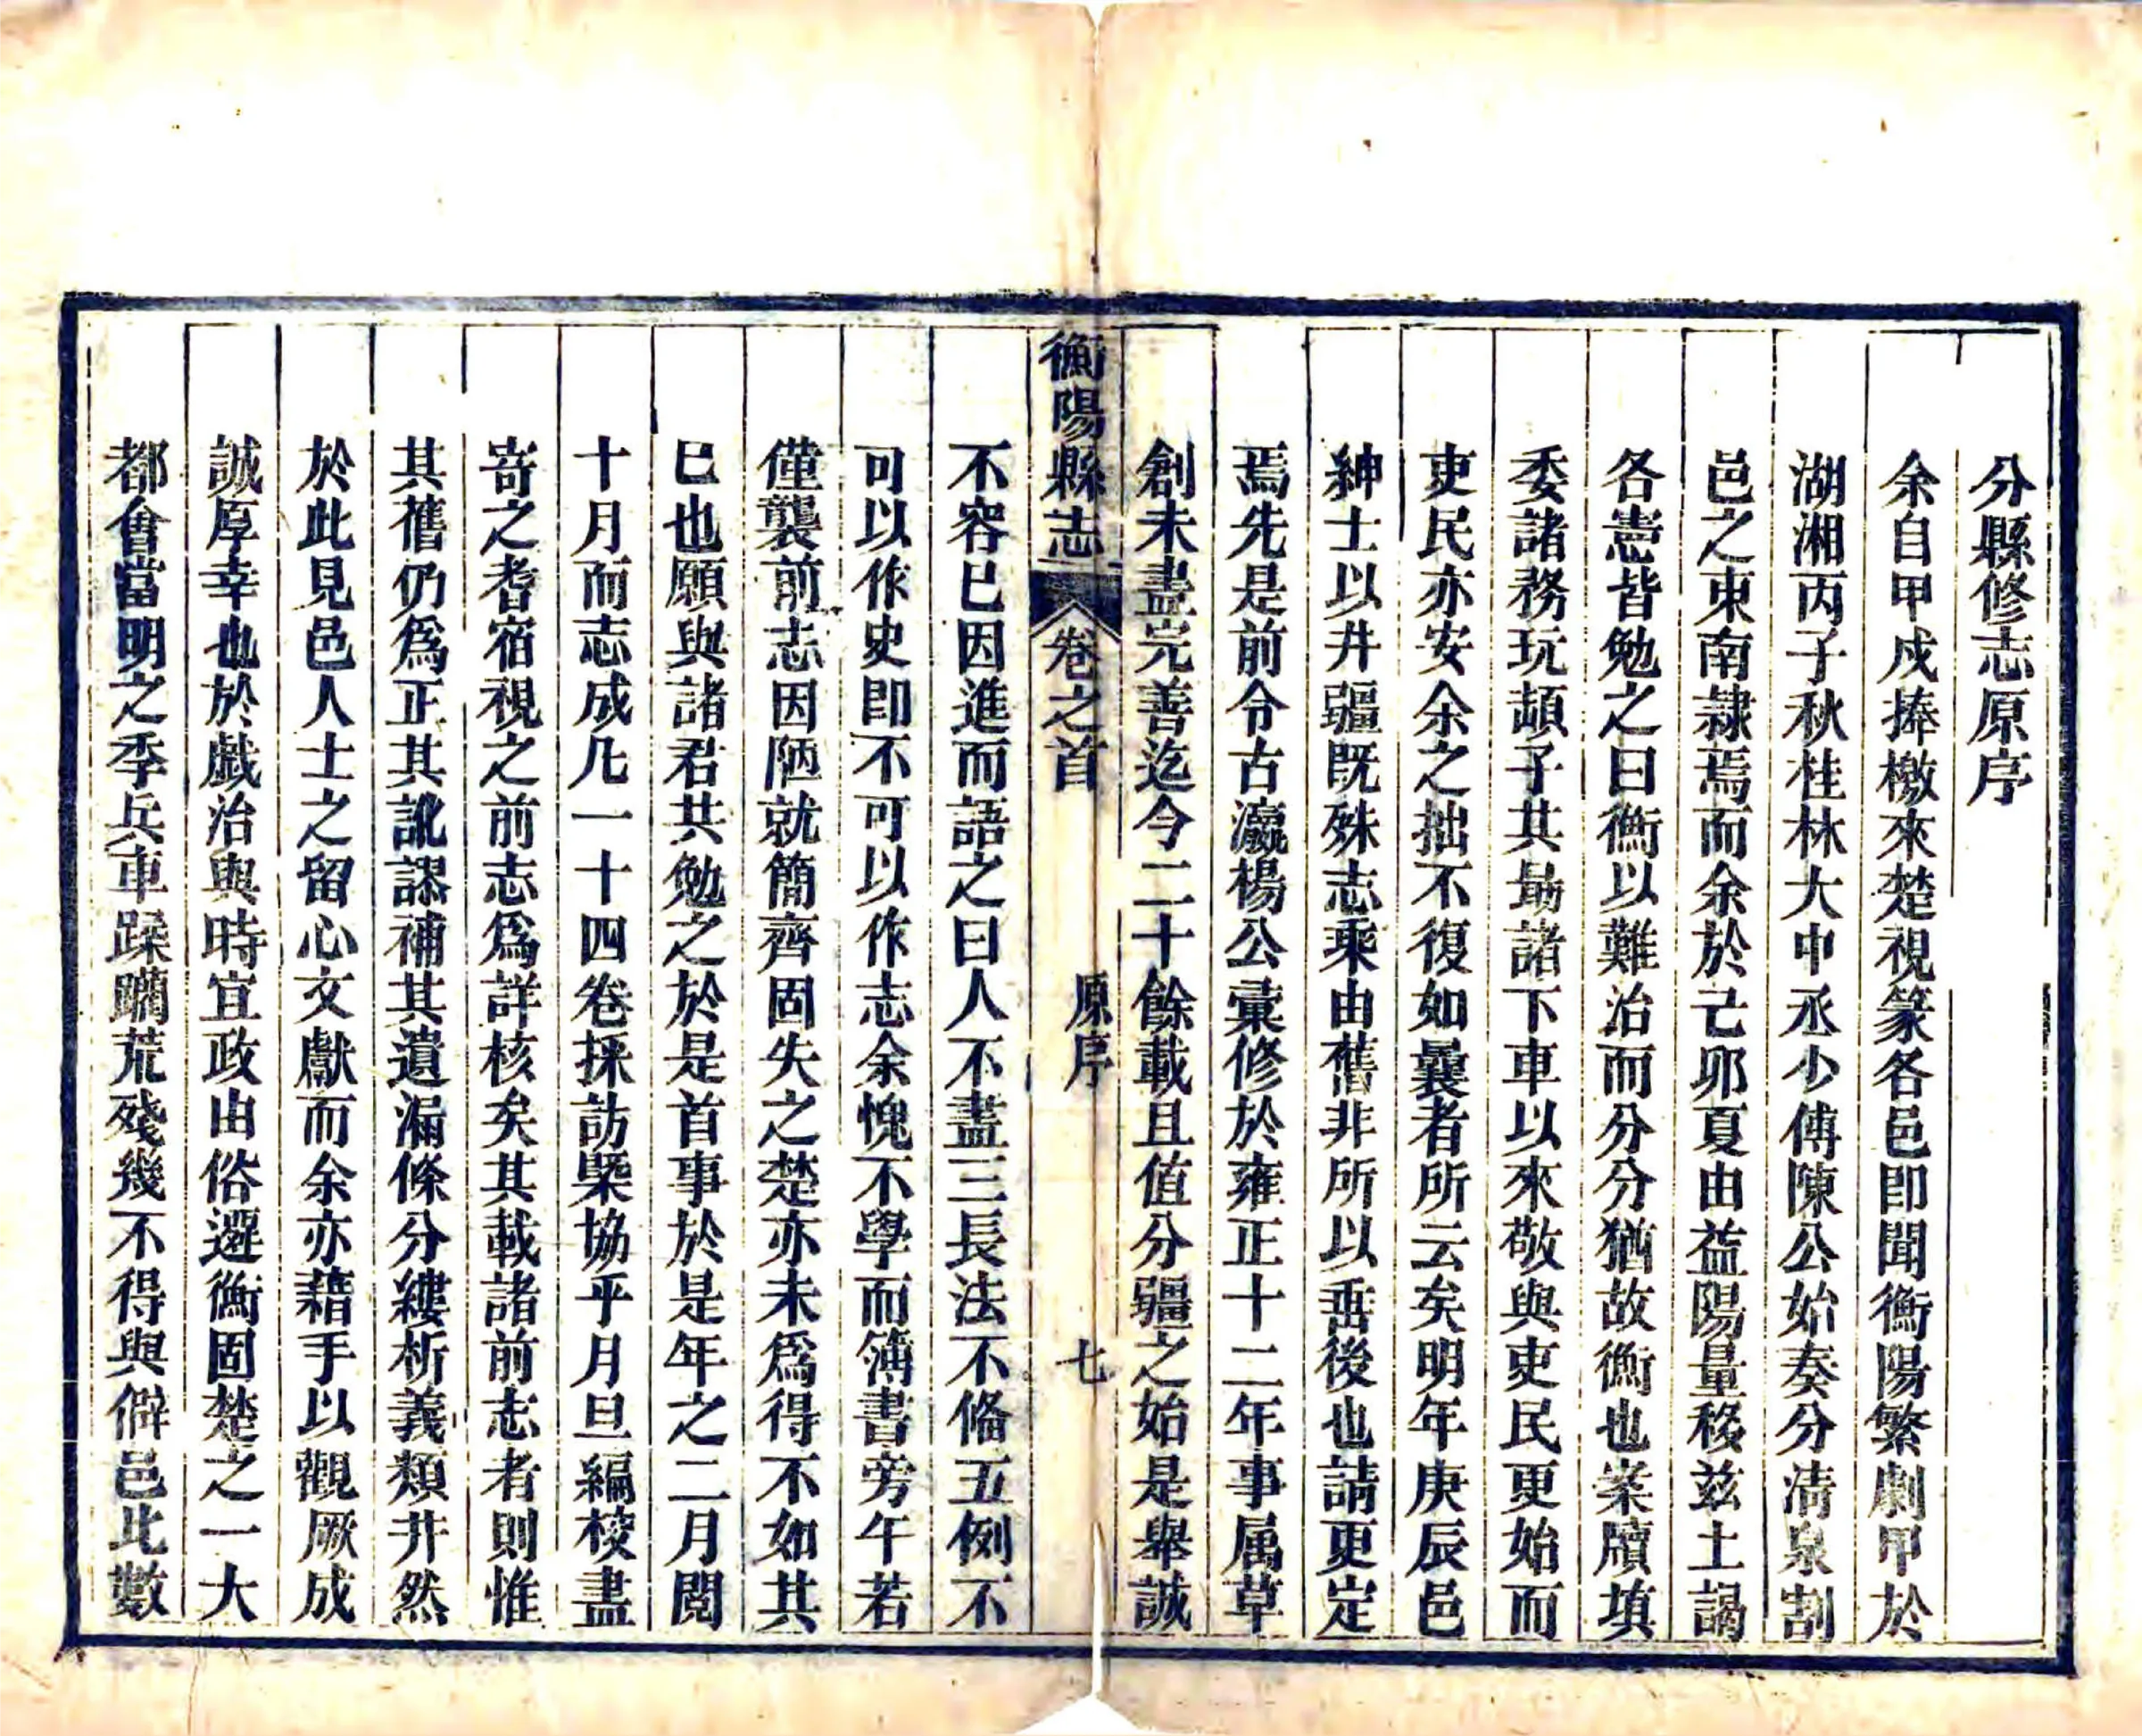 分縣修志原序
余自甲戍捧檄來楚視篆各邑即聞衡陽繁劇甲於
湖湘丙子秋桂林大中丞少傅陳公始奏分清泉割
邑之東南隸焉而余於己卯夏由益陽量移兹土謁
各憲皆勉之曰衡以難治而分分猶故衡也案牘填
委諸務玩頡子其勗諸下車以來敬與吏民更始而
吏民亦安余之拙不復如曩者所云矣明年庚辰邑
紳士以井疆既殊志乘由舊非所以垂後也請更定
焉先是前令古瀛楊公彙修於雍正十二年事属草
創未盡完善迄今二十餘載且值分疆之始是舉誠
衡陽縣志 卷之首 原序 七
不容已因進而語之曰人不盡三長法不備五例不
可以作史即不可以作志余愧不學而簿書旁午若
僅襲前志因陋就簡齊固失之楚亦未爲得不如其
已也願與諸君共勉之於是首事於是年之二月閱
十月而志成凡一十四卷採訪槩協乎月旦編校盡
寄之耆宿視之前志爲詳核矣其載諸前志者則惟
其舊仍爲正其訛謬補其遺漏條分縷析義類井然
於此見邑人士之留心文獻而余亦藉手以觀厥成
誠厚幸也於戲治與時宜政由俗遷衡固楚之一大
都會當明之季兵車蹂躪荒殘幾不得與僻邑比數